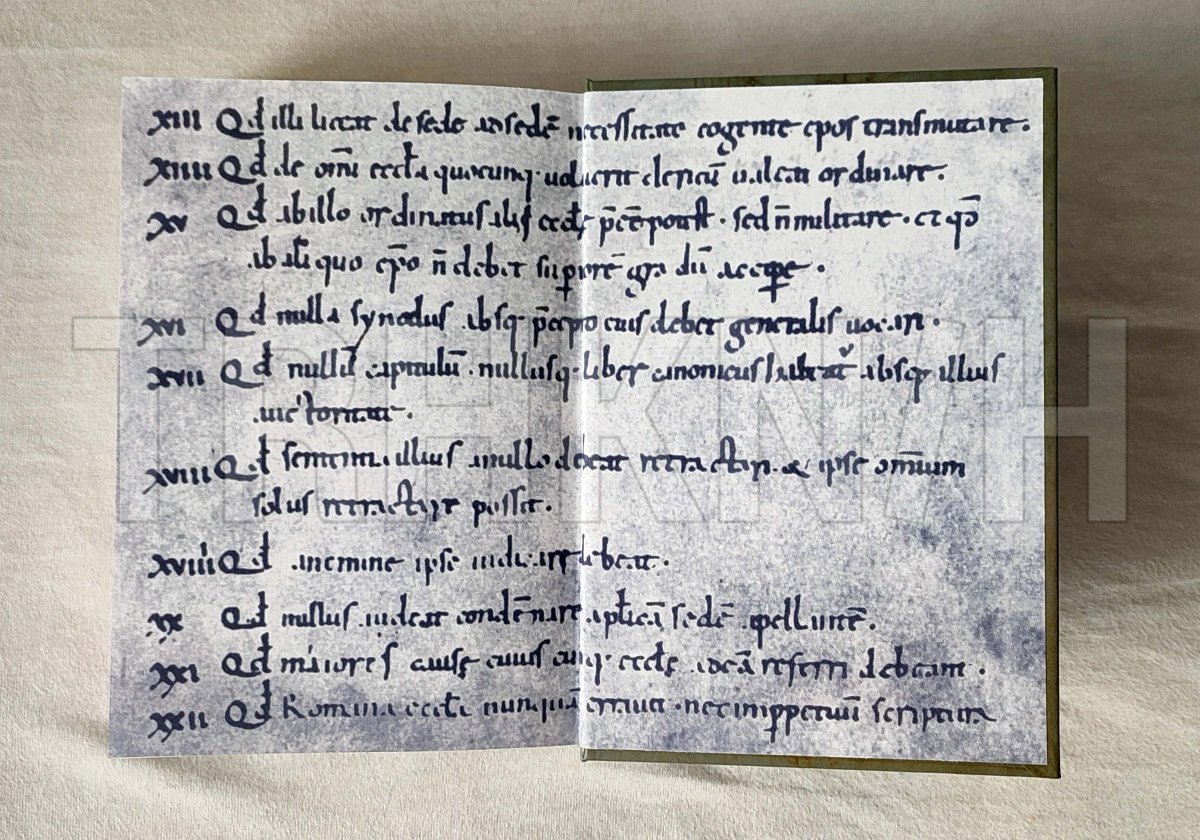 XIII Qđ illi liceat de sede ad sedē necessitate cogente epos transmutare.
XIIII Qđ de omī eccła quocumq; uoluerit clericū ualeat ordinare.
XV Qđ ab illo ordinatus alii eccłę p̄eē potest. sed n̄ militare. et qđ
ab aliquo epo n̄ debet supiorē gradū accipe.
XVI Qđ nulla synodus absq; p̄cepto eius debet generalis uocari.
XVII Qđ nullū capitulū. nullusq; liber canonicus habeat absq; illius
auctoritate.
XVIII Qđ sententia illius a nullo debeat retractari. & ipse omīum
solus retractare possit.
XVIIII Qđ a nemine ipse iudicare debeat.
XX Qđ nullus audeat condēnare apłicā sedē apellantē.
XXI Qđ maiores cause cuiuscunq; eccłę ad eā referri debeant.
XXII Qđ Romana eccła nunquā errauit. nec imppetuū scriptura